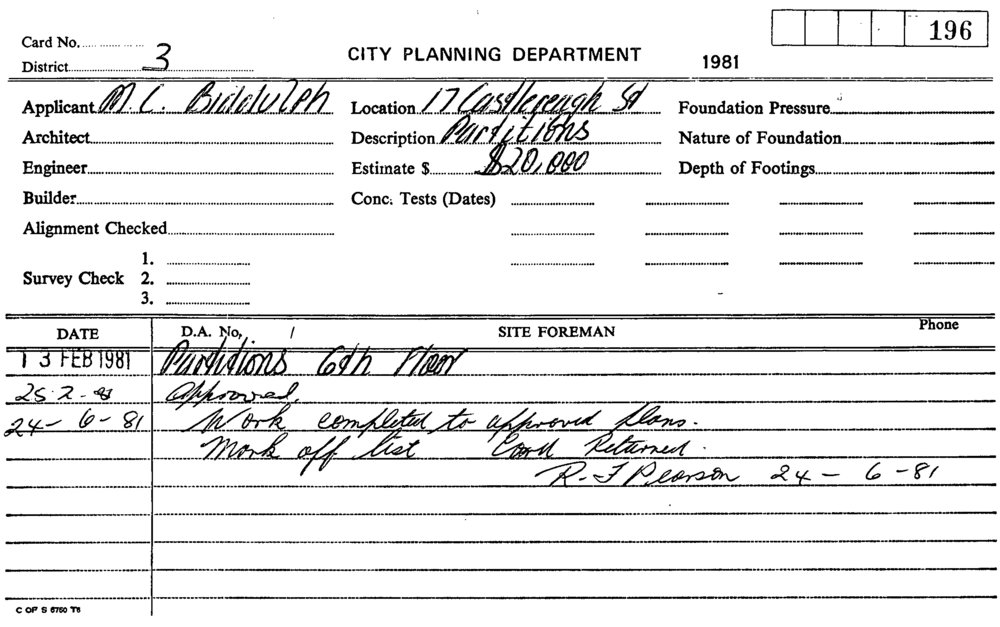 196
Card No.
District 3
CITY PLANNING DEPARTMENT 1981
Applicant M. C. Biddulph Location 17 Castlereagh St Foundation Pressure
Architect Description Partitions Nature of Foundation
Engineer Estimate $ $20,000 Depth of Footings
Builder Conc. Tests (Dates)
Alignment Checked
1.
Survey Check 2.
3.
DATE D.A. No. / SITE FOREMAN Phone
13 FEB 1981 Partitions 6th Floor
25-2-81 Approved.
24-6-81 Work completed to approved plans.
Mark off list Card Returned.
R. J Pearson 24-6-81
C OF S 6750 T6